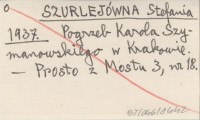 o
SZURLEJÓWNA Stefania
1937. Pogrzeb Karola Szy-
manowskiego w Krakowie.
— Prosto z Mostu 3, nr 18.